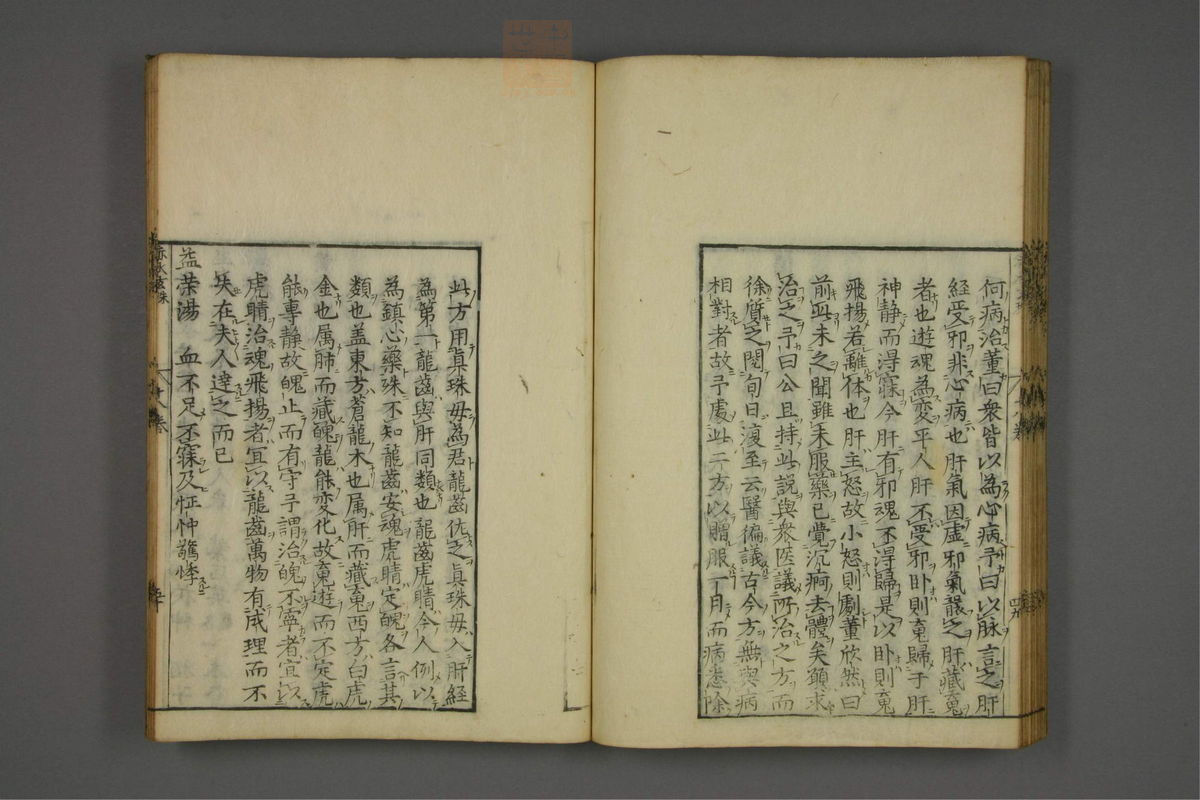 何病治董曰衆皆以為心病予曰以脉言之肝
經受邪非心病也肝氣因虚邪氣襲之肝藏䰟
者也遊魂為変平人肝不受邪卧則䰟歸于肝
神静而淂寐今肝有邪魂不淂歸是以卧則䰟
飛揚若離体也肝主怒故小怒則劇董欣然曰
前此未之聞雖未服藥已覺沉痾去體矣願求
治之予曰公且持此説與衆医議所治之方而
徐質之閲旬日復至云醫徧議古今方無與病
相對者故予處此二方以贈服一月而病悉除
此方用眞珠母為君龍齒佐之眞珠母入肝經
為第一龍齒與肝同類也龍齒虎睛今人例以
為鎮心藥殊不知龍齒安魂虎睛定魄各言其
類也盖東方蒼龍木也属肝而藏䰟西方白虎
金也属肺而藏魄龍能変化故䰟遊而不定虎
能專静故魄止而有守予謂治魄不寧者宜以
虎睛治魂飛揚者宜以龍齒萬物有成理而不
失在夫人達之而已
益榮湯 血不足不寐及怔忡驚悸